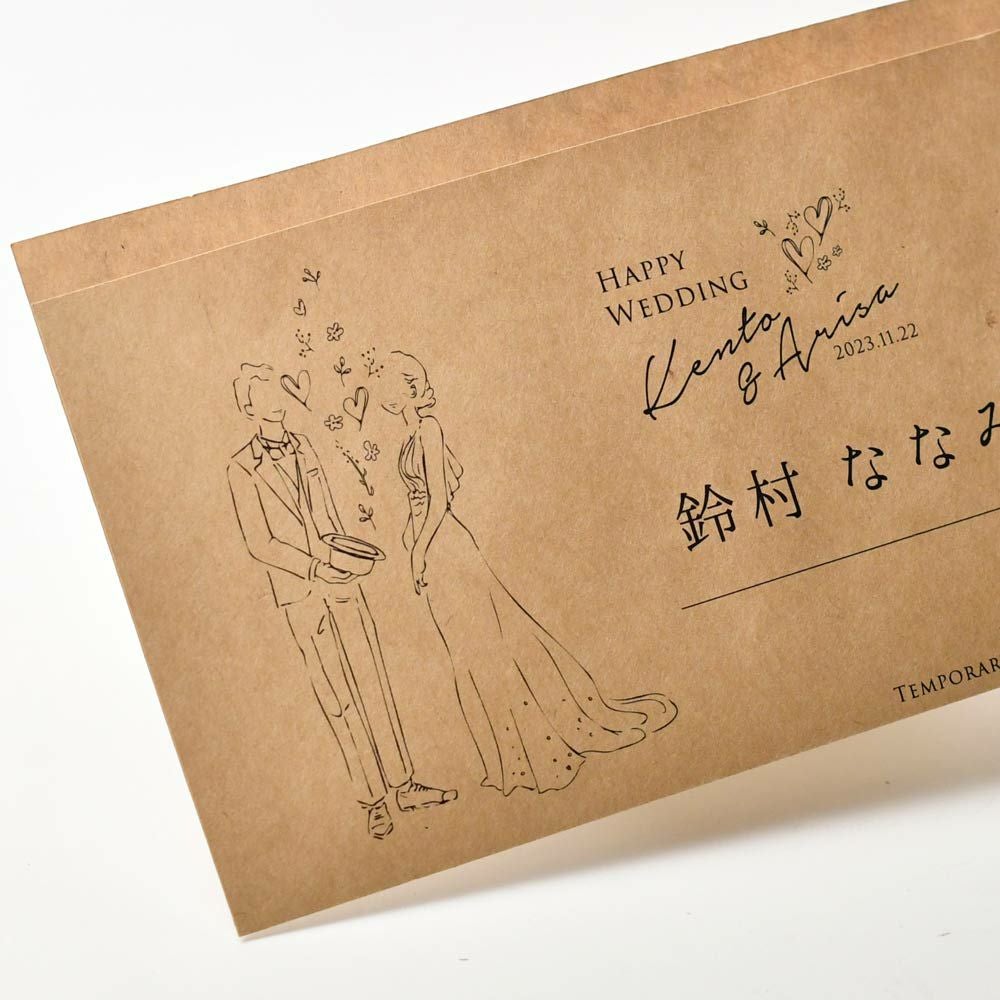 HAPPY
WEDDING
Kento
& Arisa
2023.11.22
鈴村 ななみ